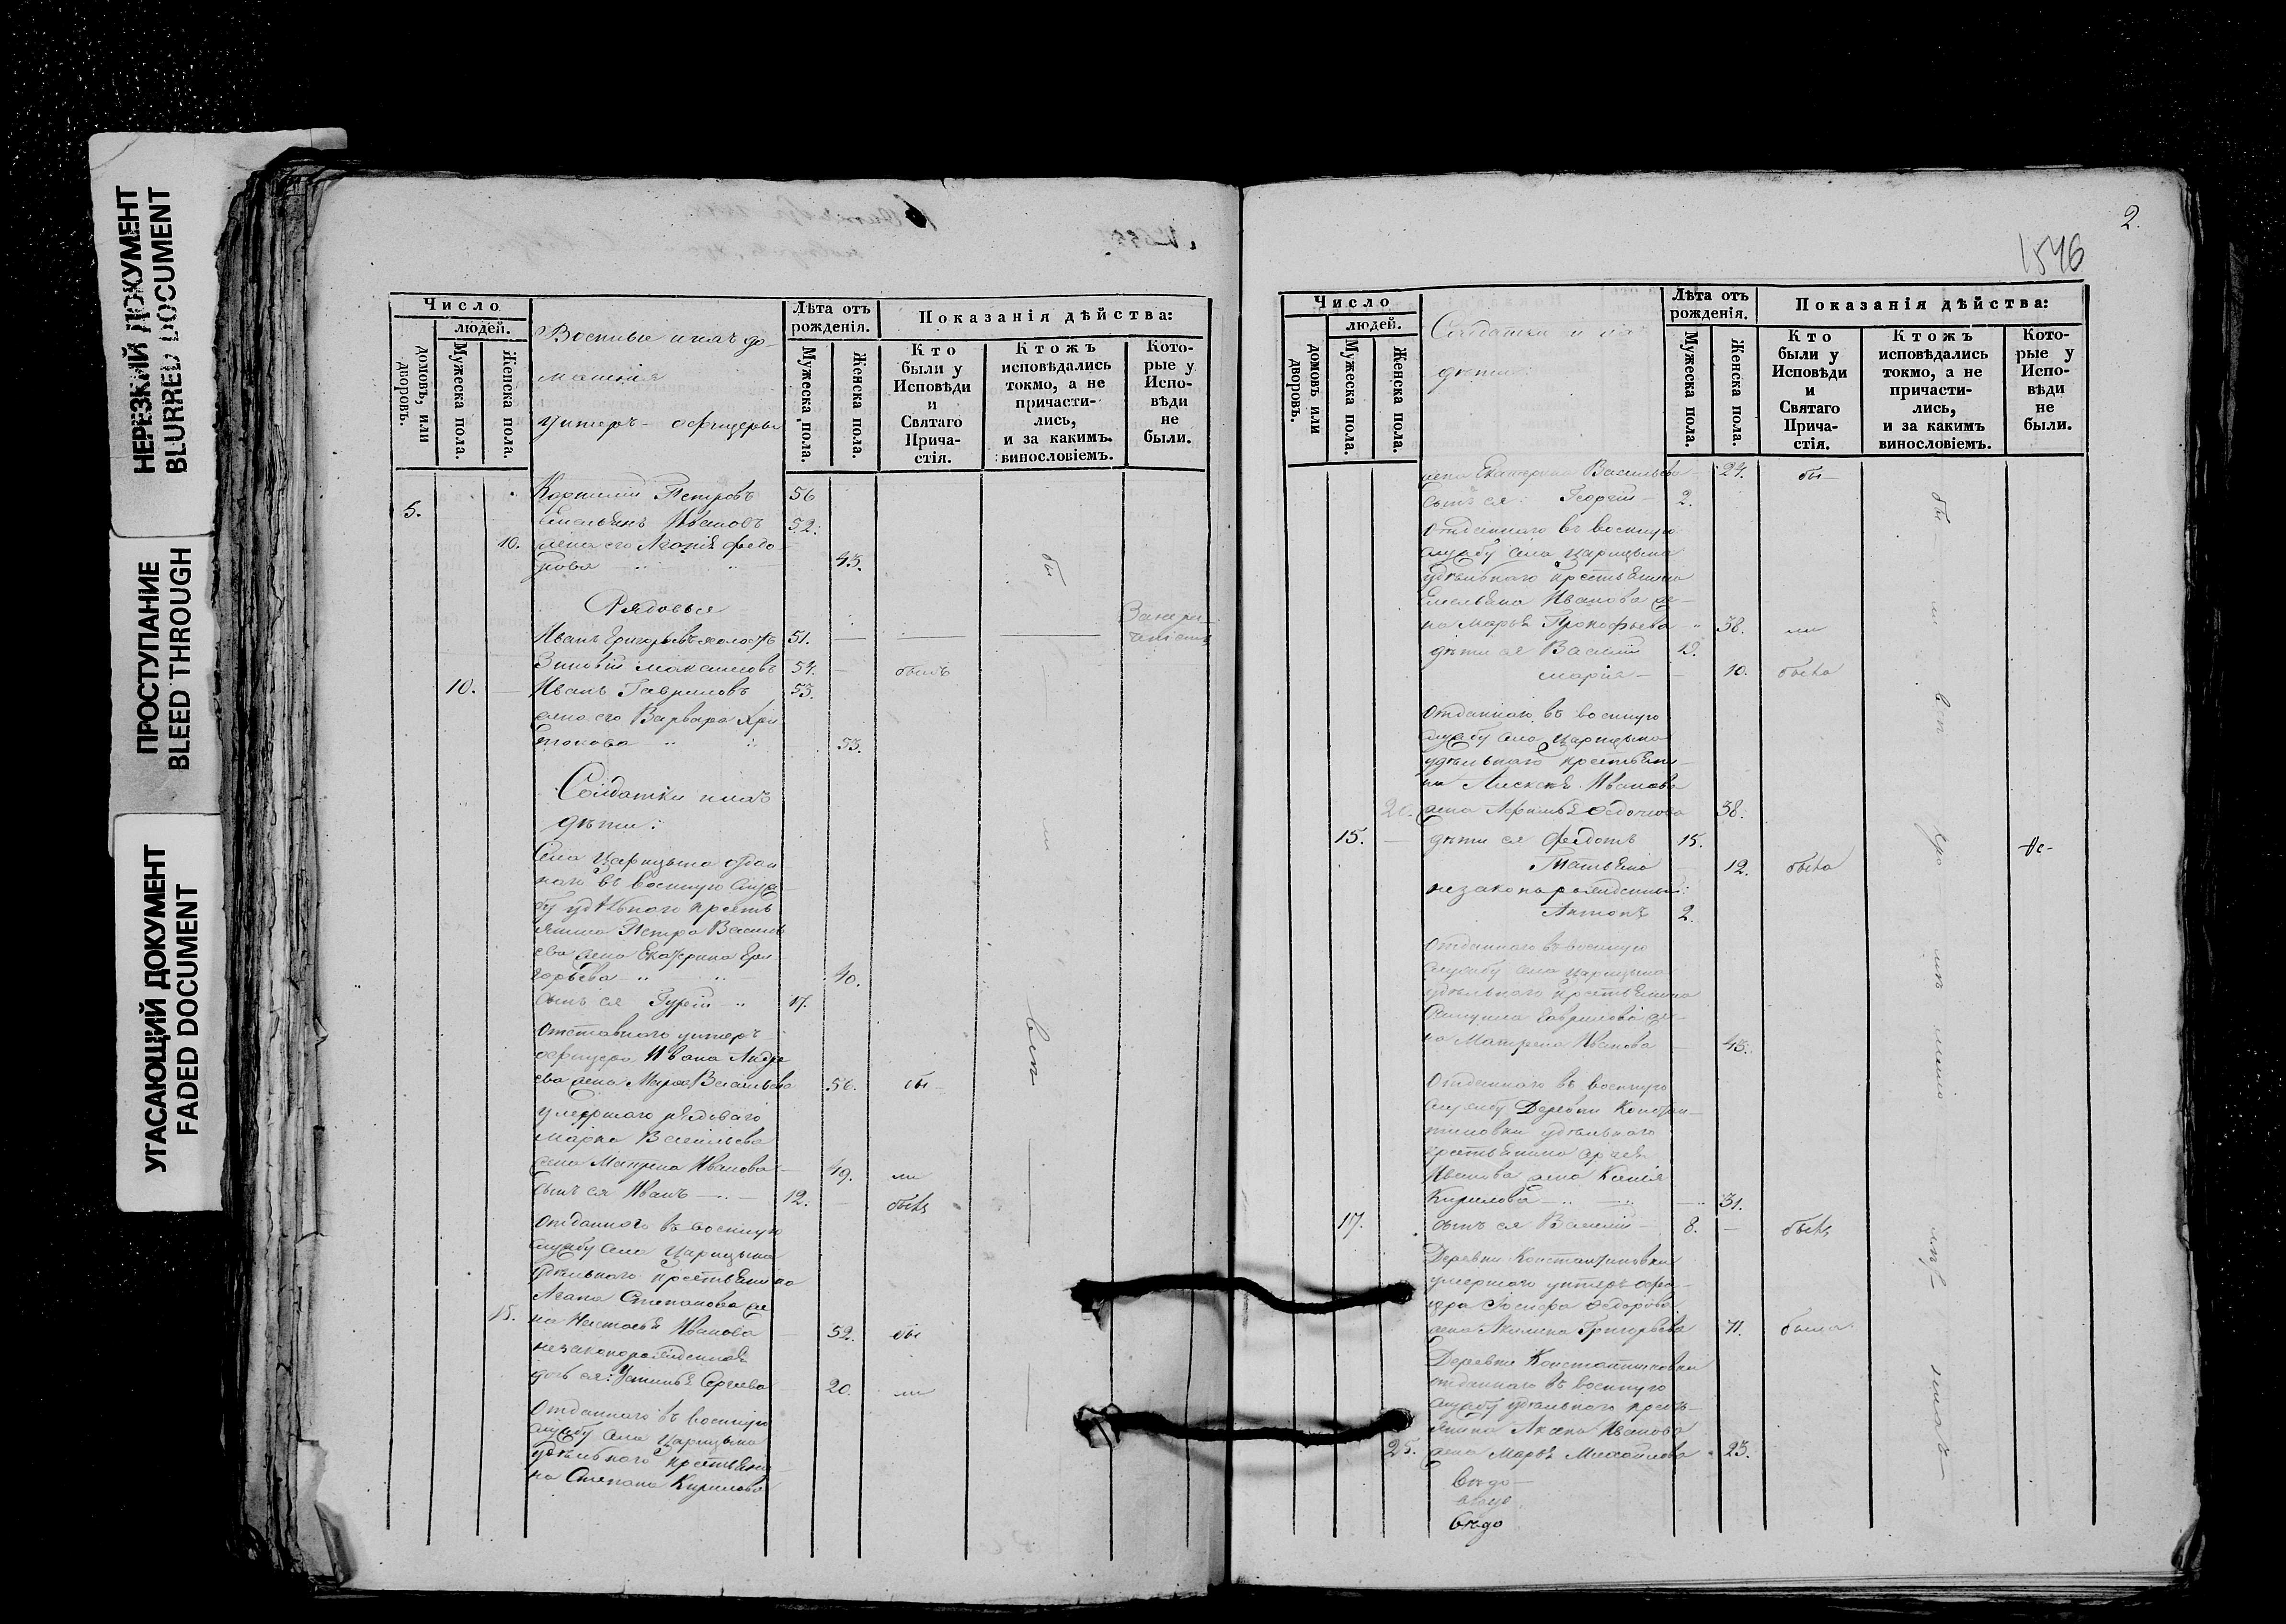 НЕРЕЗКИЙ ДОКУМЕНТ
BLURRED DOCUMENT
ПРОСТУПАНИЕ
BLEED THROUGH
УГАСАЮЩИЙ ДОКУМЕНТ
FADED DOCUMENT
Число
людей.
домовъ, или дворовъ.
Мужеска пола.
Женска пола.
Военные и ихъ до-
машнія
Унтеръ-офицеры
Лѣта отъ рожденія.
Мужеска пола.
Женска пола.
Показанія дѣйства:
Кто были у Исповѣди и Святаго Прича-стія.
Ктожъ исповѣдались токмо, а не причасти-лись, и за какимъ. винословіемъ.
Кото-рые у Испо-вѣди не были.
Корнилій Петровъ 56
5. Емельянъ Ивановъ 52.
10. жена его Агапія Ѳедо-
рова 43.
Рядовые
Иванъ Григорьевъ холостъ 51.
Зиновій Максимовъ 54. былъ
10. Иванъ Гавриловъ 53.
жена его Варвара Хри
53.
Солдатки и ихъ
дѣти:
Села Царицына отдан
наго въ военную служ
бу удѣльнаго кресть
янина Петра Василь
ева жена Екатерина Гри
горьева 40.
сынъ ея Гурій 17.
Отставнаго унтеръ
офицера Ивана Андре
ева жена Марѳа Васильева 56. бы
умершаго рядоваго
Марка Васильева
жена Матрена Иванова 49. ли
сынъ ея Иванъ 12. былъ
Отданнаго въ военную
службу села Царицына
удѣльнаго крестьянина
Агапа Степанова же
15. на Настасья Иванова 52. бы
незаконорожденная
дочь ея: Устинья Сергѣева 20. ли
Отданнаго въ военную
службу села Царицына
удѣльнаго крестьяни
на Степана Кирилова
бы
ли
всп
2.
1546
Число
людей.
домовъ или дворовъ.
Мужеска пола.
Женска пола.
Солдатки и ихъ
дѣти:
Лѣта отъ рожденія.
Мужеска пола.
Женска пола.
Показанія дѣйства:
Кто были у Исповѣди и Святаго Прича-стія.
Ктожъ исповѣдались токмо, а не причасти-лись, и за какимъ винословіемъ.
Кото-рые у Испо-вѣди не были.
жена Екатерина Васильева 24. бы
сынъ ея: Георгій 2.
Отданнаго въ военную
службу села Царицына
удѣльнаго крестьянина
Емельяна Иванова же-
на Марья Прокофьева 38. ли
дѣти ея Василій 13.
Марія 10. была
Отданнаго въ военную
службу села Царицына
удѣльнаго крестьяни-
на Алексѣя Иванова
20. жена Афимья Ѳедотова 38.
15. дѣти ея Ѳедотъ 15. не
Татьяна 12. была
незаконорожденный:
Антонъ 2.
Отданнаго въ военную
службу села Царицына
удѣльнаго крестьянина
Гаврилова же-
на Матрена Иванова 43.
Отданнаго въ военную
службу Деревни Констан-
тиновки удѣльнаго
крестьянина Сергѣя
Иванова жена Ксенія
Кирилова 31.
17. сынъ ея Василій 8. былъ
Деревни Константиновки
умершаго унтеръ офи-
цера Іосифа Ѳедорова
жена Акилина Григорьева 71. была
Деревни Константиновки
отданнаго въ военную
службу удѣльнаго кресть-
янина Иванова
25. жена Марья Михайлова 23.